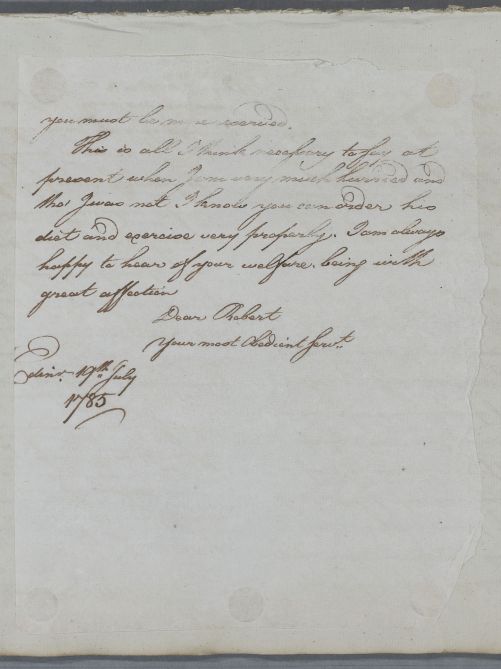 you must be more reserved.
This is all I think necessary to say at
present when I am very much hurried and
tho' I was not I know you can order his
diet and exercise very properly. I am always
happy to hear of your welfare. being with
great affection
Dear Robert
Your most Obedient Servt.
Edinr. 19th July
1785